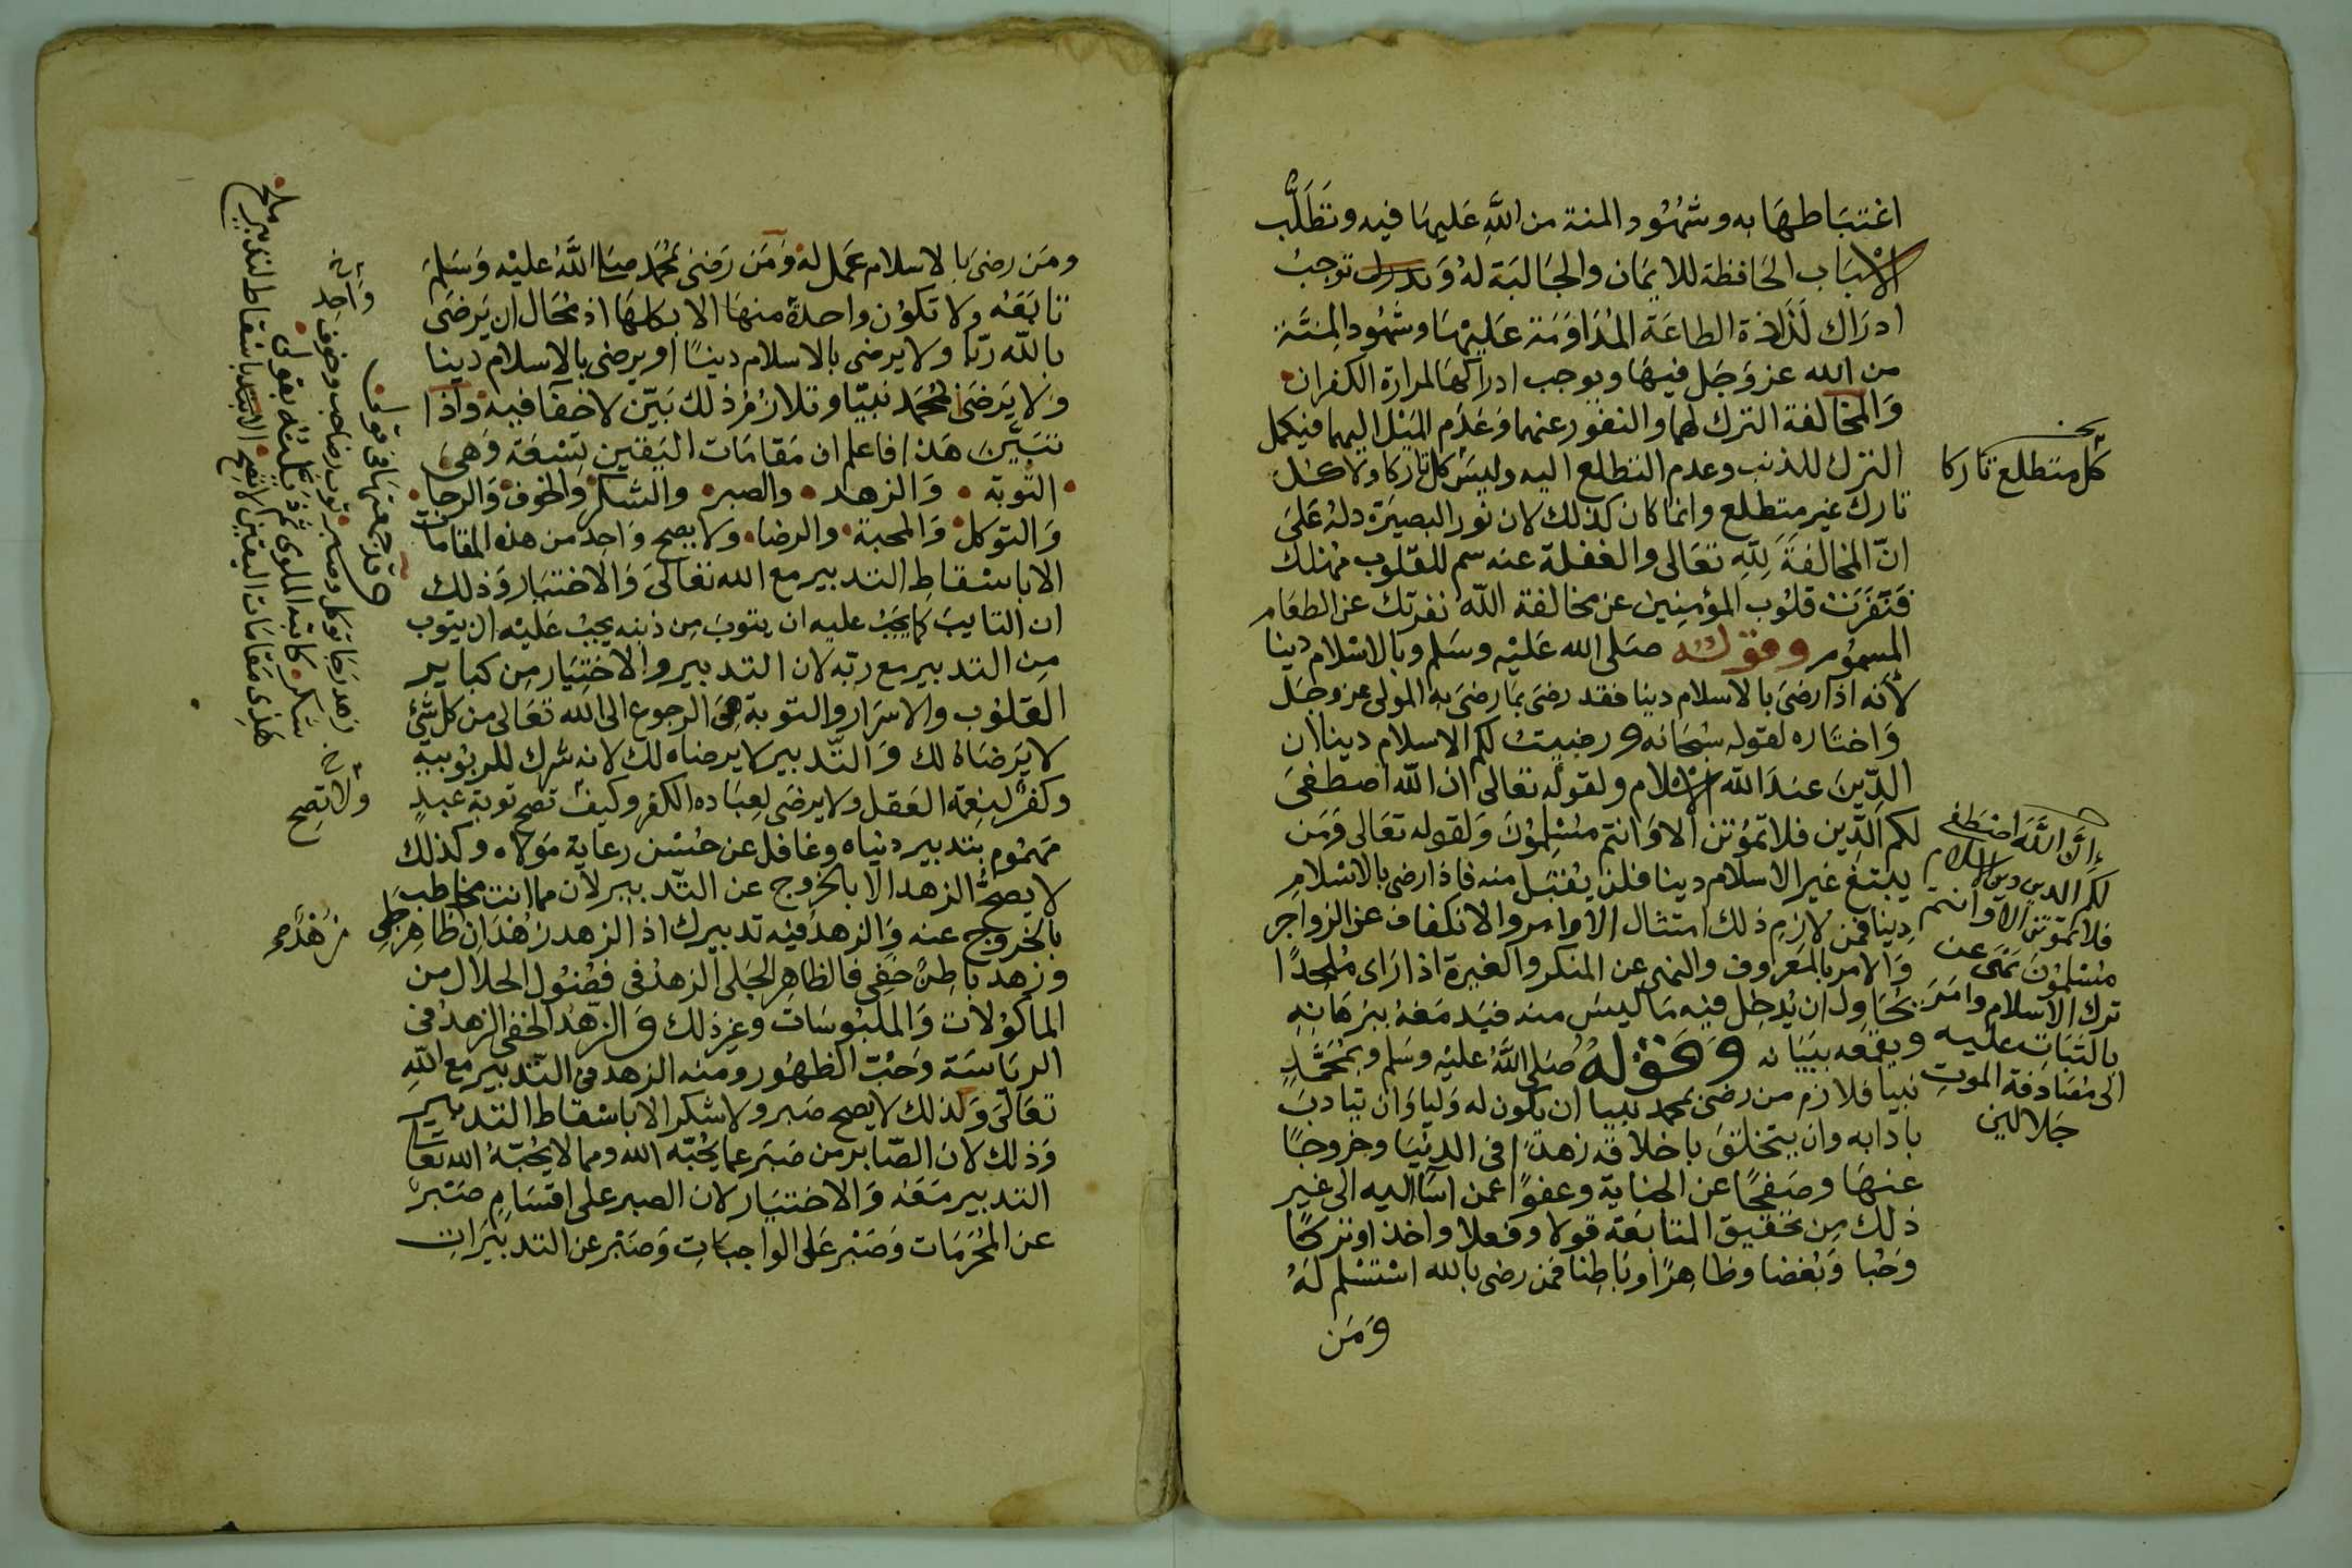 اغتباطها به وشهود المنة من الله عليها فيه وتطلب
الاسباب الحافظة للايمان والجالبة له وتدرك توجب
ادراك لذاذة الطاعة المداومة عليها وشهود المنة
من الله عز وجل فيها ويوجب ادراكها لمرارة الكفران
والمخالفة الترك لهما والنفور عنهما وعدم الميل اليهما فيكمل
الترك للذنب وعدم التطلع اليه وليس كل تاركا ولا كل
تارك غير متطلع وانما كان كذلك لان نور البصيرة دله على
ان المخالفة لله تعالى والغفلة عنه سم للقلوب مهلك
فنفرت قلوب المؤمنين عن مخالفة الله نفرتك عن الطعام
المسموم وقوله صلى الله عليه وسلم وبالاسلام دينا
لانه اذا رضى بالاسلام دينا فقد رضى بما رضى به المولى عز وجل
واختاره لقوله سبحانه ورضيت لكم الاسلام دينا ان
الدين عند الله الاسلام ولقوله تعالى ان الله اصطفى
لكم الدين فلا تموتن الا وانتم مسلمون ولقوله تعالى ومن
يبتغ غير الاسلام دينا فلن يقبل منه فاذا رضى بالاسلام
دينا فمن لازم ذلك امتثال الاوامر والانكفاف عن الزواجر
والامر بالمعروف والنهى عن المنكر والغيرة اذا راى ملحدا
يحاول ان يدخل فيه ما ليس منه فيدمغه ببرهانه
ويقمعه ببيانه وقوله صلى الله عليه وسلم وبمحمد
نبيا فلازم من رضى بمحمد نبيا ان يكون له وليا وان يتادب
بادابه وان يتخلق باخلاقه زهدا فى الدنيا وخروجا
عنها وصفحا عن الجناية وعفوا عمن اسا اليه الى غير
ذلك من تحقيق المتابعة قولا وفعلا واخذا وتركا
وحبا وبغضا وظاهرا وباطنا فمن رضى بالله استسلم له
ومن
كل متطلع تاركا
ان الله اصطفى
لكم الدين دين الاسلام
فلا تموتن الا وانتم
مسلمون نهى عن
ترك الاسلام وامر
بالثبات عليه
الى مصادفة الموت
جلالين
ومن رضى بالاسلام عمل له ومن رضى بمحمد صلى الله عليه وسلم
تابعه ولا تكون واحدة منها الا بكلها اذ محال ان يرضى
بالله ربا ولا يرضى بالاسلام دينا او يرضى بالاسلام دينا
ولا يرضى بمحمد نبيا وتلازم ذلك بين لا خفا فيه واذا
تبين هذا فاعلم ان مقامات اليقين تسعة وهى
التوبة والزهد والصبر والشكر والخوف والرجا
والتوكل والمحبة والرضا ولا يصح واحد من هذه المقامات
الا باسقاط التدبير مع الله تعالى والاختيار وذلك
ان التايب كما يجب عليه ان يتوب من ذنبه يجب عليه ان يتوب
من التدبير مع ربه لان التدبير والاختيار من كباير
القلوب والاسرار والتوبة هى الرجوع الى الله تعالى من كل شئ
لا يرضاه لك والتدبير لا يرضاه لك لانه شرك للربوبية
وكفر لنعمة العقل ولا يرضى لعباده الكفر وكيف تصح توبة عبد
مهموم بتدبير دنياه وغافل عن حسن رعاية مولاه وكذلك
لا يصح الزهد الا بالخروج عن التدبير لان مما انت مخاطب
بالخروج عنه والزهد فيه تدبيرك اذ الزهد زهدان ظاهر جلى
وزهد باطن خفى فالظاهر الجلى الزهد فى فضول الحلال من
الماكولات والملبوسات وغير ذلك والزهد الخفى الزهد فى
الرياسة وحب الظهور ومنه الزهد فى التدبير مع الله
تعالى وكذلك لا يصح صبر ولا شكر الا باسقاط التدبير
وذلك لان الصابر من صبر عما يحبه الله ومما لا يحبه الله تعالى
التدبير معه والاختيار لان الصبر على اقسام صبر
عن المحرمات وصبر على الواجبات وصبر عن التدبيرات
وقد جمعتها فى قولى
توب رضا حب وخوف واحد
زهد رجا توكل وصبر
شكر كاتبه الملوى ثم ذيلته بقولى
هذى مقامات اليقين لا تصح الا باسقاط لتدبير ملح
ولا تصح